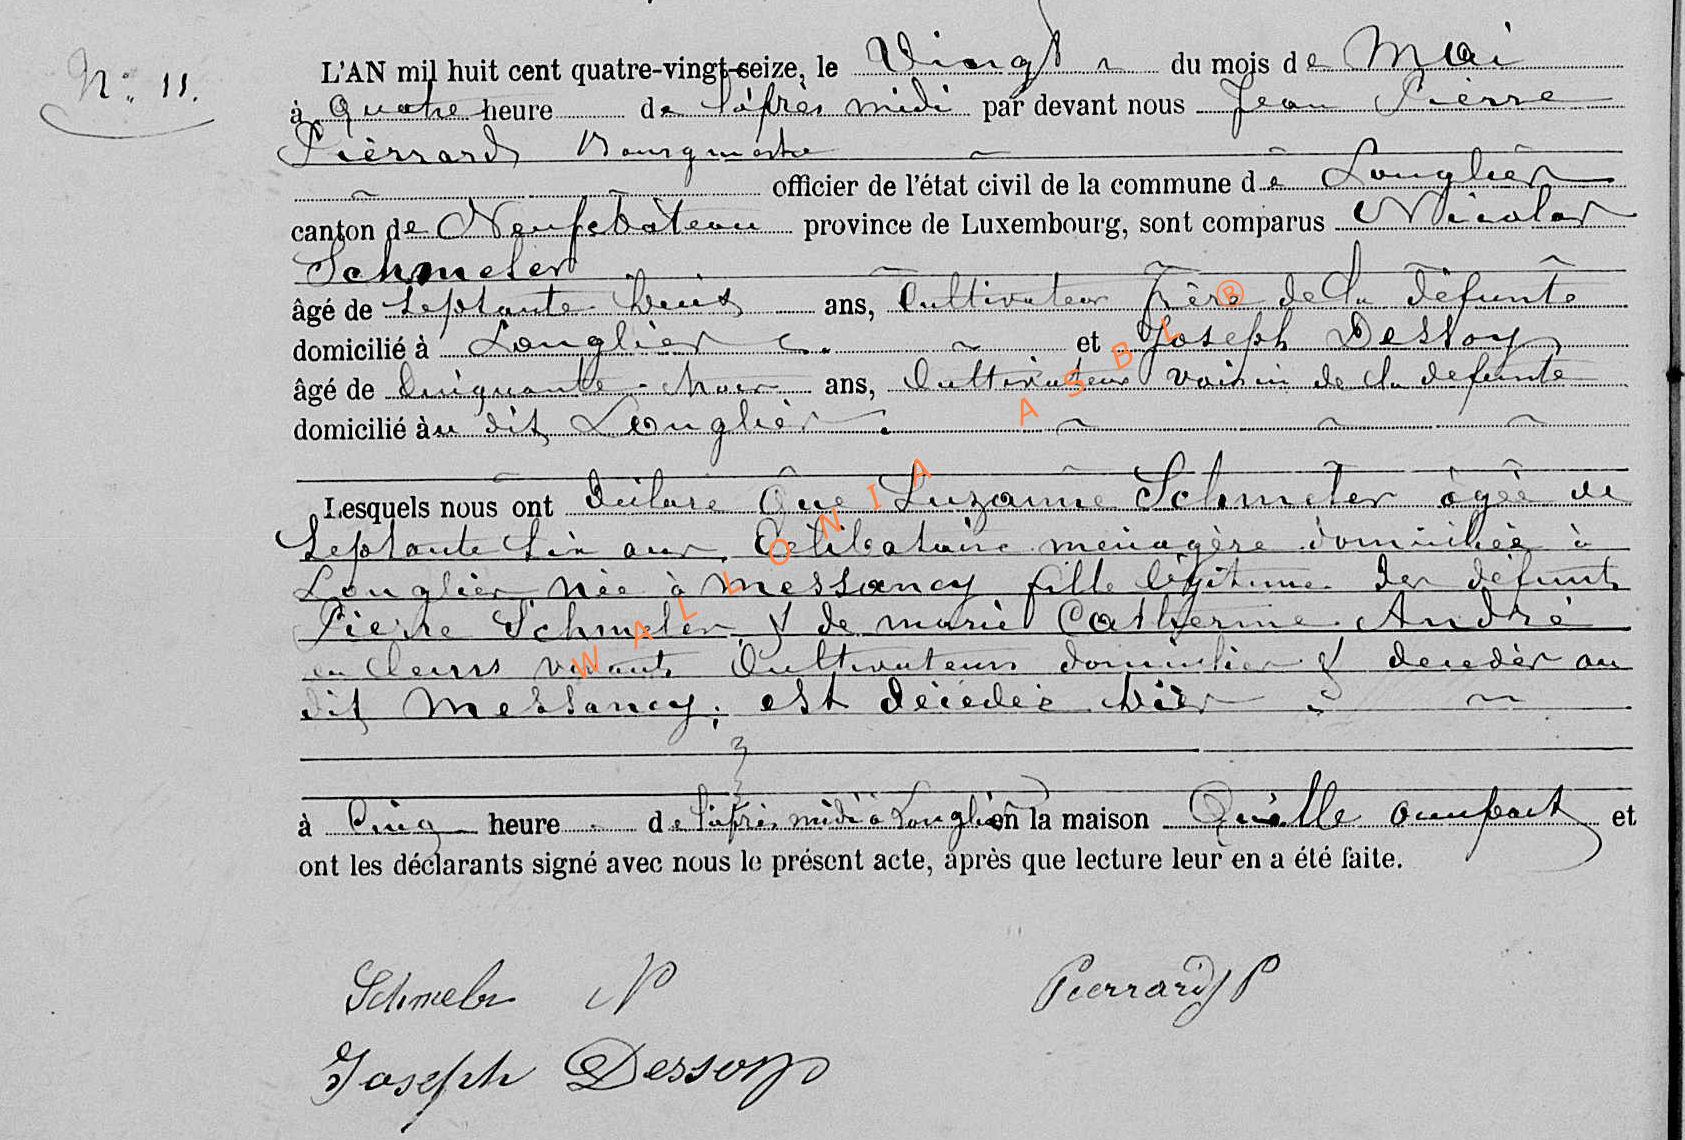 N° 11.
L'AN mil huit cent quatre-vingt-seize, le Vingt du mois de Mai
à quatre heure de l'après midi par devant nous Jean Pierre
Pierrard Bourgmestre
officier de l'état civil de la commune de Longlier
canton de Neufchâteau province de Luxembourg, sont comparus Nicolas
Schmeler
âgé de septante huit ans, Cultivateur frère de la défunte
domicilié à Longlier et Joseph Dessoy
âgé de Cinquante ans, Cultivateur voisin de la défunte
domicilié au dit Longlier.
Lesquels nous ont déclaré Que Suzanne Schmeler agée de
Septante six ans, Célibataire ménagère domiciliée à
Longlier née à Messancy fille légitime des défunts
Pierre Schmeler & de marie Catherine André
en leurs vivants Cultivateurs domiciliés & décédés au
dit Messancy; est décédée hier
à Cinq heure de l'après midi à Longlier en la maison Qu'elle occupait et
ont les déclarants signé avec nous le présent acte, après que lecture leur en a été faite.
Schmeler N Pierrard P
Joseph Dessoy
WALLONIA ASBL ®